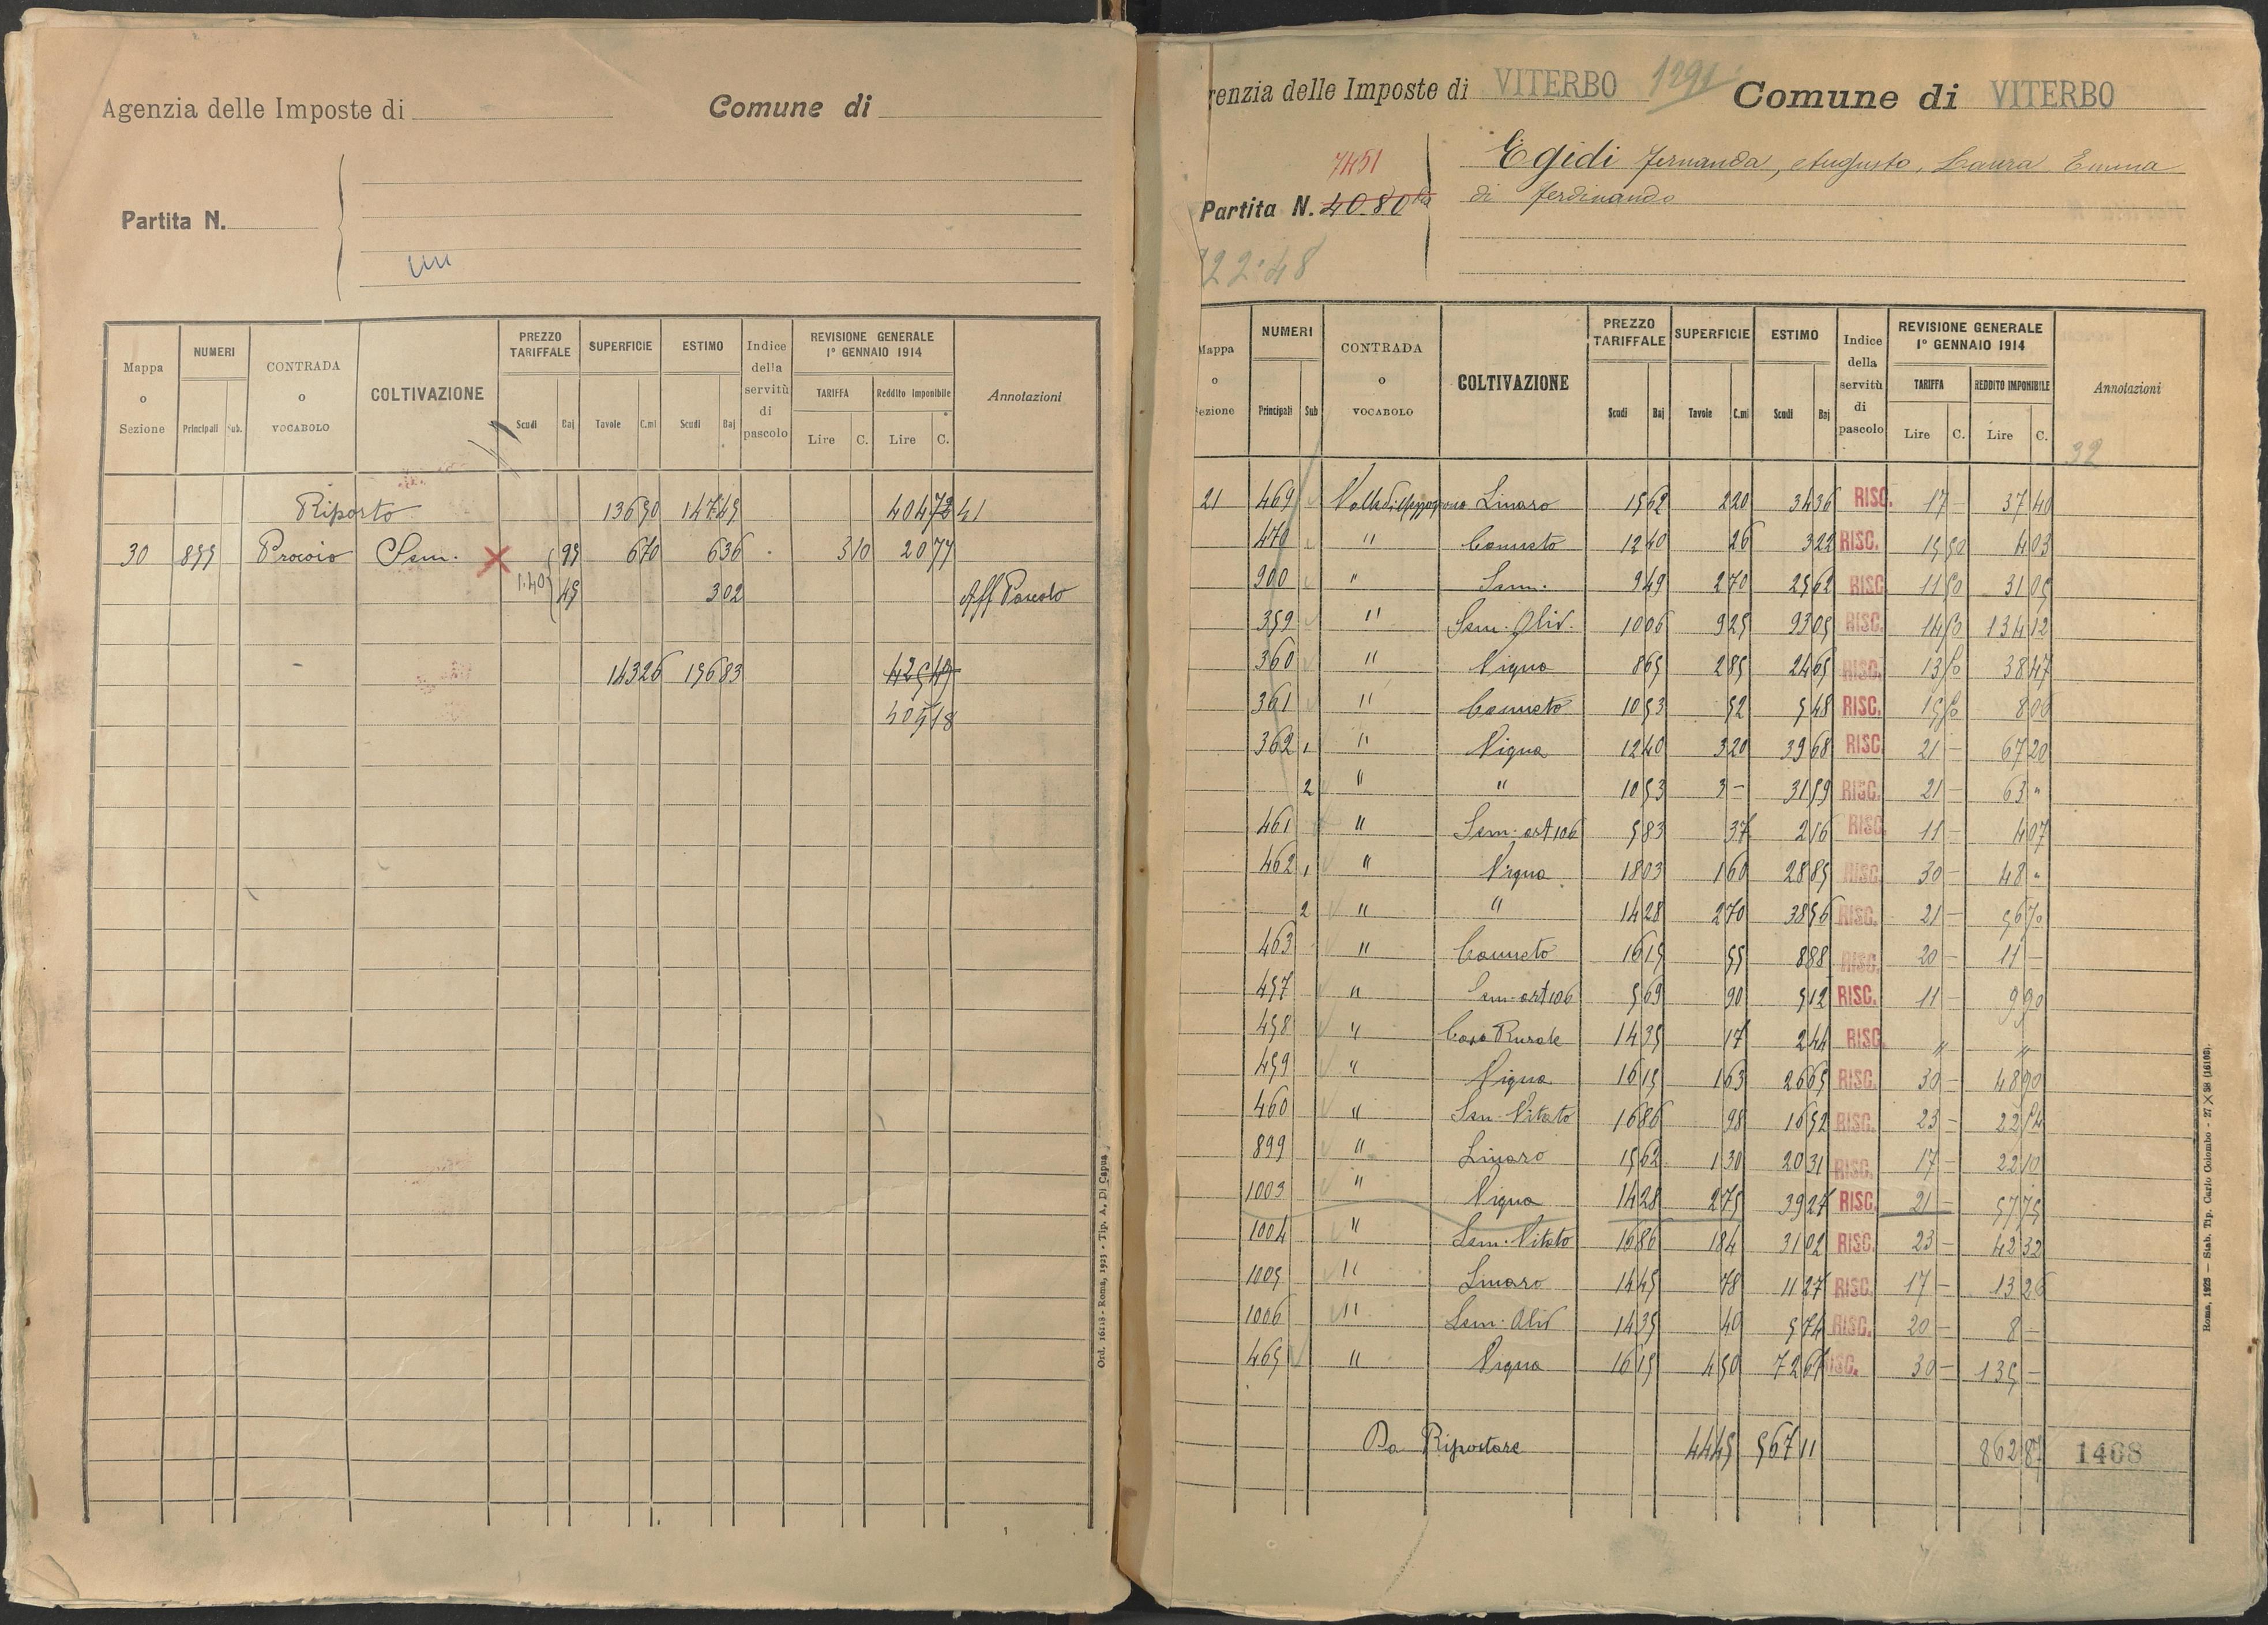 Agenzia delle Imposte di
Comune di
Partita N.
Mappa o Sezione
NUMERI
Principali
Sub.
CONTRADA o VOCABOLO
COLTIVAZIONE
PREZZO TARIFFALE
Scudi
Baj
SUPERFICIE
Tavole
C.mi
ESTIMO
Scudi
Baj
Indice della servitù di pascolo
REVISIONE GENERALE 1° GENNAIO 1914
TARIFFA
Lire
C.
Reddito imponibile
Lire
C.
Annotazioni
Riporto 136 90 147 45
30 Procoio Sem. 95 6 70 6 36 3 10 20 77
1.40 45 3 02 Aff Pascolo
143 26 156 83
405 18
Ord. 16118 - Roma, 1923 - Tip. A. Di Capua
genzia delle Imposte di VITERBO 1291 Comune di VITERBO
7451
Partita N. 4080
Egidi Fernanda, Augusto, Laura Emma
di Ferdinando
22:48
Mappa o Sezione
NUMERI
Principali
Sub
CONTRADA o VOCABOLO
COLTIVAZIONE
PREZZO TARIFFALE
Scudi
Baj
SUPERFICIE
Tavole
C.mi
ESTIMO
Scudi
Baj
Indice della servitù di pascolo
REVISIONE GENERALE 1° GENNAIO 1914
TARIFFA
Lire
C.
REDDITO IMPONIBILE
Lire
C.
Annotazioni
32
21 469 Linaro 15 62 2 20 34 36 RISC. 17 — 37 40
470 " Canneto 12 40 26 3 22 RISC. 15 50 4 03
200 " Sem. 9 49 2 70 25 62 RISC 11 50 31 05
359 " Sem. Oliv. 10 06 9 25 93 05 RISC. 14 50 134 12
360 " Vigna 8 65 2 85 24 65 RISC. 13 50 38 47
361 " Canneto 10 53 52 5 48 RISC. 15 50 8 06
362 1 " Vigna 12 40 3 20 39 68 RISC 21 — 67 20
2 " " 10 53 3 — 31 59 RISC. 21 — 63 "
461 " Sem. art 106 5 83 37 2 16 RISC 11 — 4 07
462 1 " Vigna 18 03 1 60 28 85 RISC. 30 — 48 "
2 " " 14 28 2 70 38 56 RISC. 21 — 56 70
463 " Canneto 16 15 55 8 88 RISC. 20 — 11 —
457 " Sem. art 106 5 69 90 5 12 RISC. 11 — 9 90
458 " Casa Rurale 14 35 17 2 44 RISC. " "
459 " Vigna 16 15 1 63 26 65 RISC. 30 — 48 90
460 " Sem. Vitato 16 86 98 16 52 RISC. 23 — 22 54
899 " Linaro 15 62 1 30 20 31 RISC. 17 — 22 10
1003 " Vigna 14 28 2 75 39 27 RISC. 21 — 57 75
1004 " Sem. Vitato 16 86 1 84 31 02 RISC. 23 — 42 32
1005 " Linaro 14 45 78 11 27 RISC. 17 — 13 26
1006 " Sem. Oliv 14 35 40 5 74 RISC. 20 — 8 —
465 " Vigna 16 15 4 50 72 67 RISC. 30 — 135 —
Da Riportare 44 45 567 11 862 87 1408
Roma, 1923 — Stab. Tip. Carlo Colombo - 27 X 38 (16109).